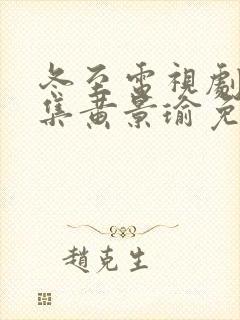 冬至電視劇
集黄景瑜免
趙克生